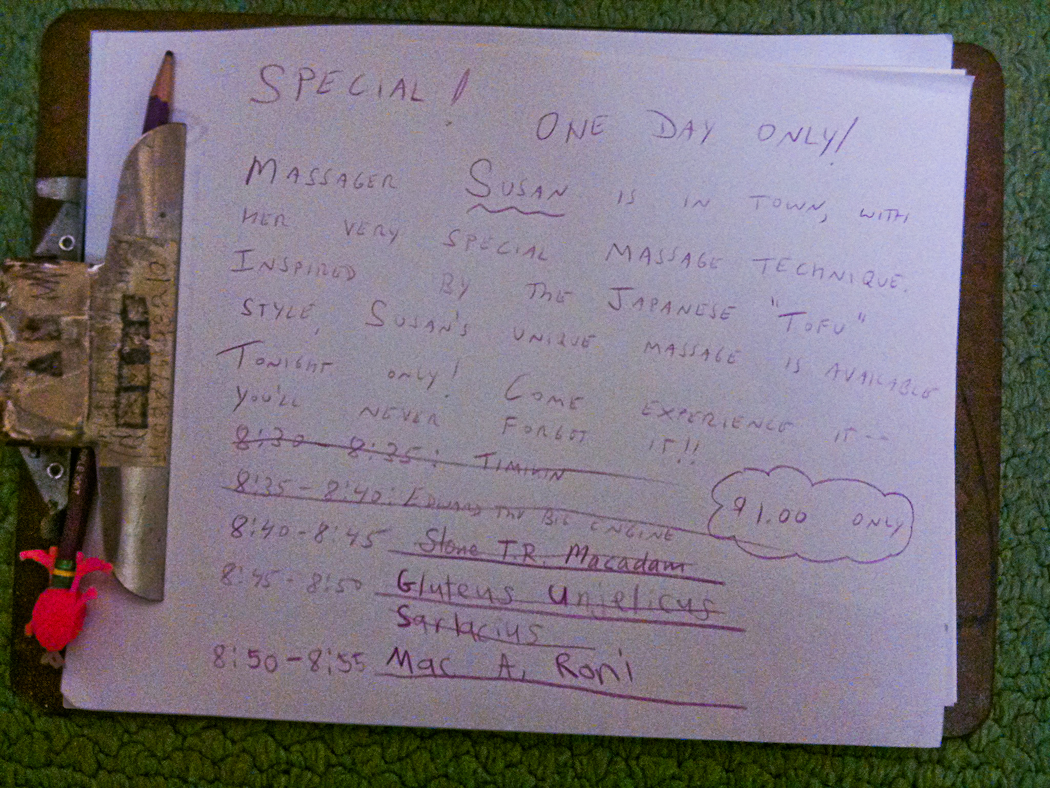 SPECIAL!
ONE DAY ONLY!
MASSAGER SUSAN IS IN TOWN, WITH
HER VERY SPECIAL MASSAGE TECHNIQUE.
INSPIRED BY THE JAPANESE "TOFU"
STYLE, SUSAN'S UNIQUE MASSAGE IS AVAILABLE
TONIGHT ONLY! COME EXPERIENCE IT--
YOU'LL NEVER FORGET IT!!
8:30 - 8:35: TIMIKIN
8:35 - 8:40: EDWARD THE BIG ENGINE
$1.00 ONLY
8:40-8:45 Stone T.R. Macadam
8:45-8:50 Gluteus Unjelicus
Sartacius
8:50-8:55 Mac A. Roni